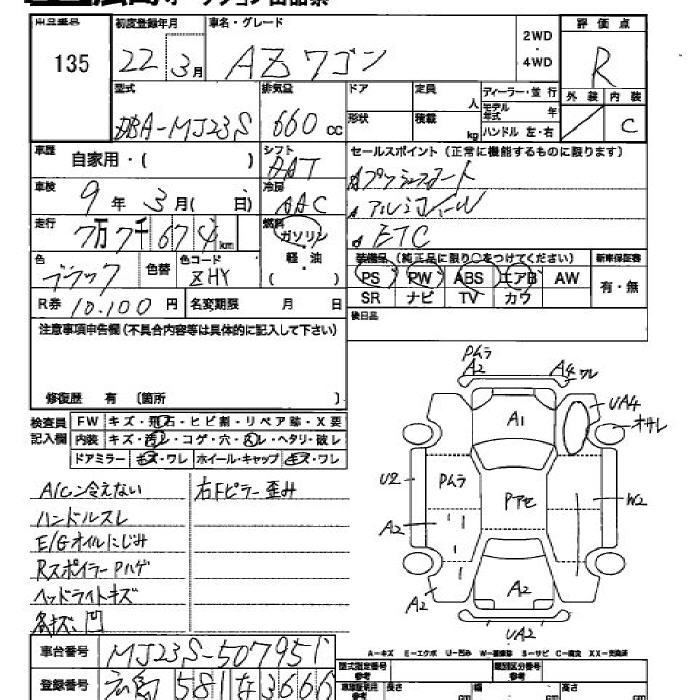 広島オークション出品票
出品番号 初度登録年月 車名・グレード 2WD・4WD 評価点
135 22 3月 AZワゴン R
型式 排気量 ドア 定員 人 ディーラー・並行 外装 内装
DBA-MJ23S 660cc 形状 積載 kg モデル年式 年 ハンドル 左・右 C
車歴 自家用・( ) シフト セールスポイント(正常に機能するものに限ります)
DAT
車検 9年3月( 日) 冷房 AAC
プッシュスタート
アルミホイール
ETC
走行 7万7千674km 燃料 ガソリン 軽・油 ( )
色 ブラック 色替 色コード ZHY
装備品(純正品に限り○をつけてください) 新車保証書
PS PW ABS エアB AW 有・無
SR ナビ TV カワ
R券 10,100円 名変期限 月 日
後日品
注意事項申告欄(不具合内容等は具体的に記入して下さい)
修復歴 有 〔箇所 〕
検査員記入欄
FW キズ・飛石・ヒビ割・リペア跡・X要
内装 キズ・汚レ・コゲ・穴・スレ・ヘタリ・破レ
ドアミラー キズ・ワレ ホイール・キャップ キズ・ワレ
A/Cン冷えない 右Fピラー歪み
ハンドルスレ
E/Gオイルにじみ
RスポイラーPハゲ
ヘッドライトキズ
各キズ、凹
PムラA2 A4ワレ
A1 UA4 オサレ
U2 Pムラ Pアセ W2
A2
A2 A2
UA2
A-キズ E-エクボ U-凹み W-補修跡 S-サビ C-腐食 XX-交換済
車台番号 MJ23S-507951
登録番号 広島 581 な 3666
型式指定番号 参考 類別区分番号 参考
長さ cm 幅 cm 高さ cm